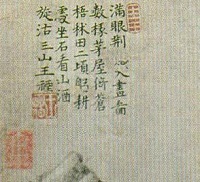 滿眼荆入畫圖
數椽茅屋倚蒼
梧秫田二頃躬耕
坐石看山酒
旋沽三山王